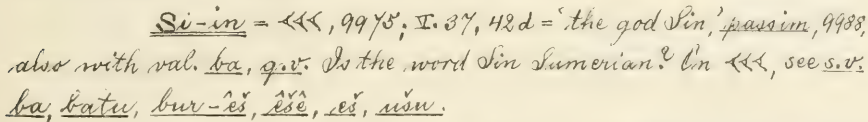 Si-in = <<<, 9975; II. 37, 42d = 'the god Sin,' passim, 9988,
also with val. ba, q.v. Is the word Sin Sumerian? On <<<, see s.v.
ba, batu, bur-êš, êšê, eš, ušu.